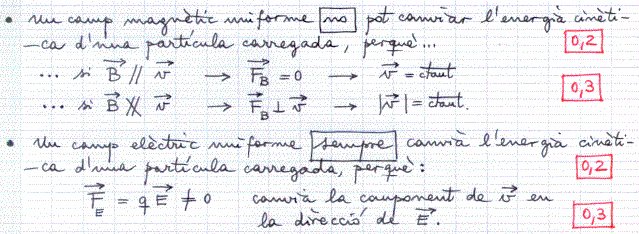 • Un camp magnètic uniforme no pot canviar l'energia cinèti-
-ca d'una partícula carregada, perquè... 0,2
... si B⃗ // v⃗ → F⃗_B = 0 → v⃗ = c⃗tant 0,3
... si B⃗ ∦ v⃗ → F⃗_B ⊥ v⃗ → |v⃗| = ctant.
• Un camp elèctric uniforme sempre canvia l'energia cinèti-
-ca d'una partícula carregada, perquè: 0,2
F⃗_E = q E⃗ ≠ 0 canvia la component de v⃗ en
la direcció de E⃗. 0,3